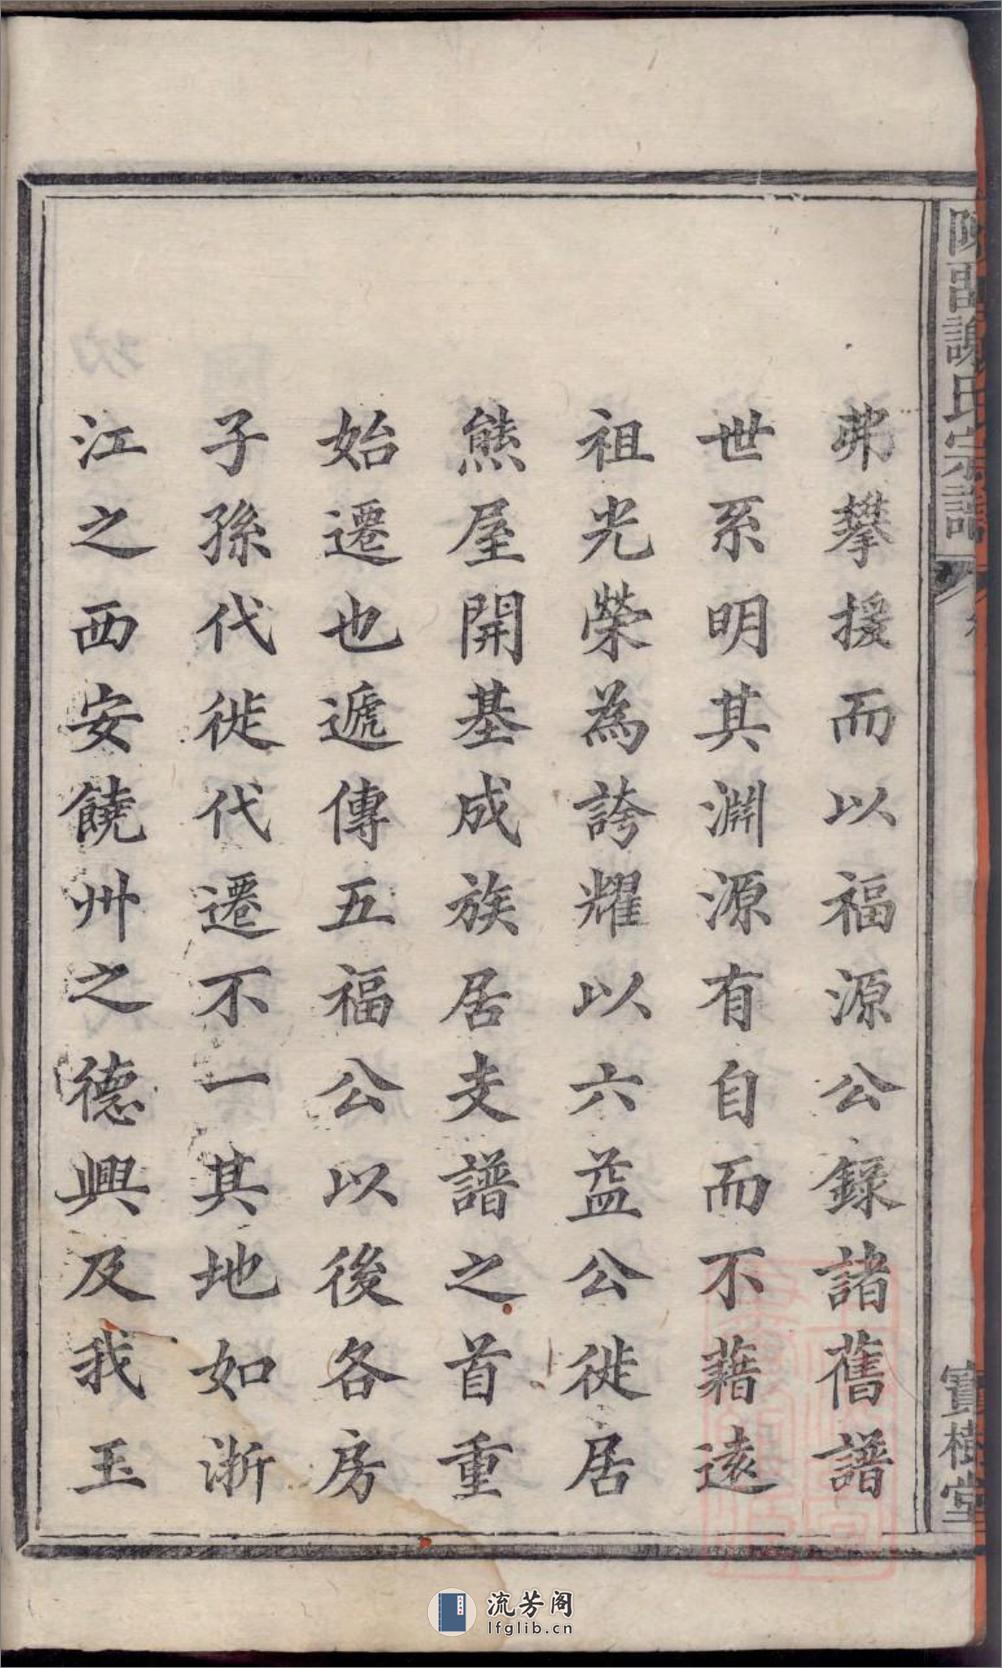 陳留謝氏宗譜
寶樹堂
弗攀援而以福源公録諸舊譜
世系明其淵源有自而不藉遠
祖光榮為誇耀以六益公徙居
熊屋開基成族居支譜之首重
始遷也遞傳五福公以後各房
子孫代徙代遷不一其地如浙
江之西安饒州之德興及我玉
流芳阁
lfglib.cn